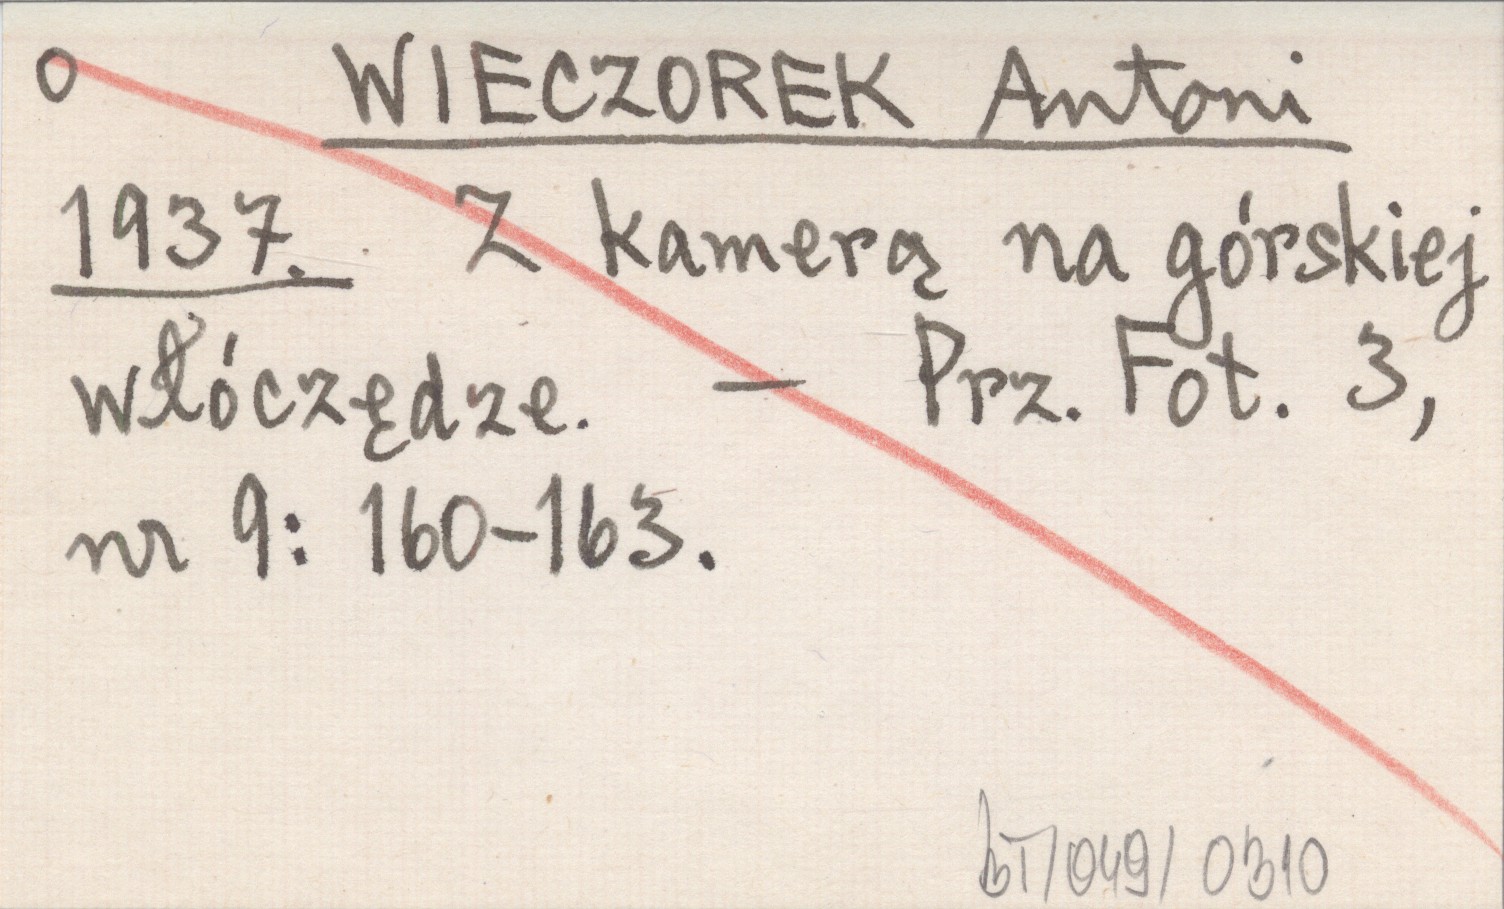 o WIECZOREK Antoni
1937. Z kamerą na górskiej
włóczędze. — Prz. Fot. 3,
nr 9: 160-163.
bT/049/0310